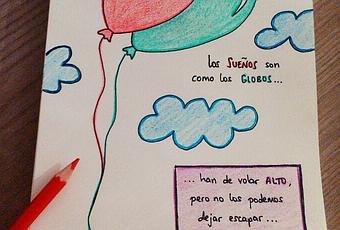 los SUEÑOS son
como los GLOBOS...
... han de volar ALTO,
pero no los podemos
dejar escapar...